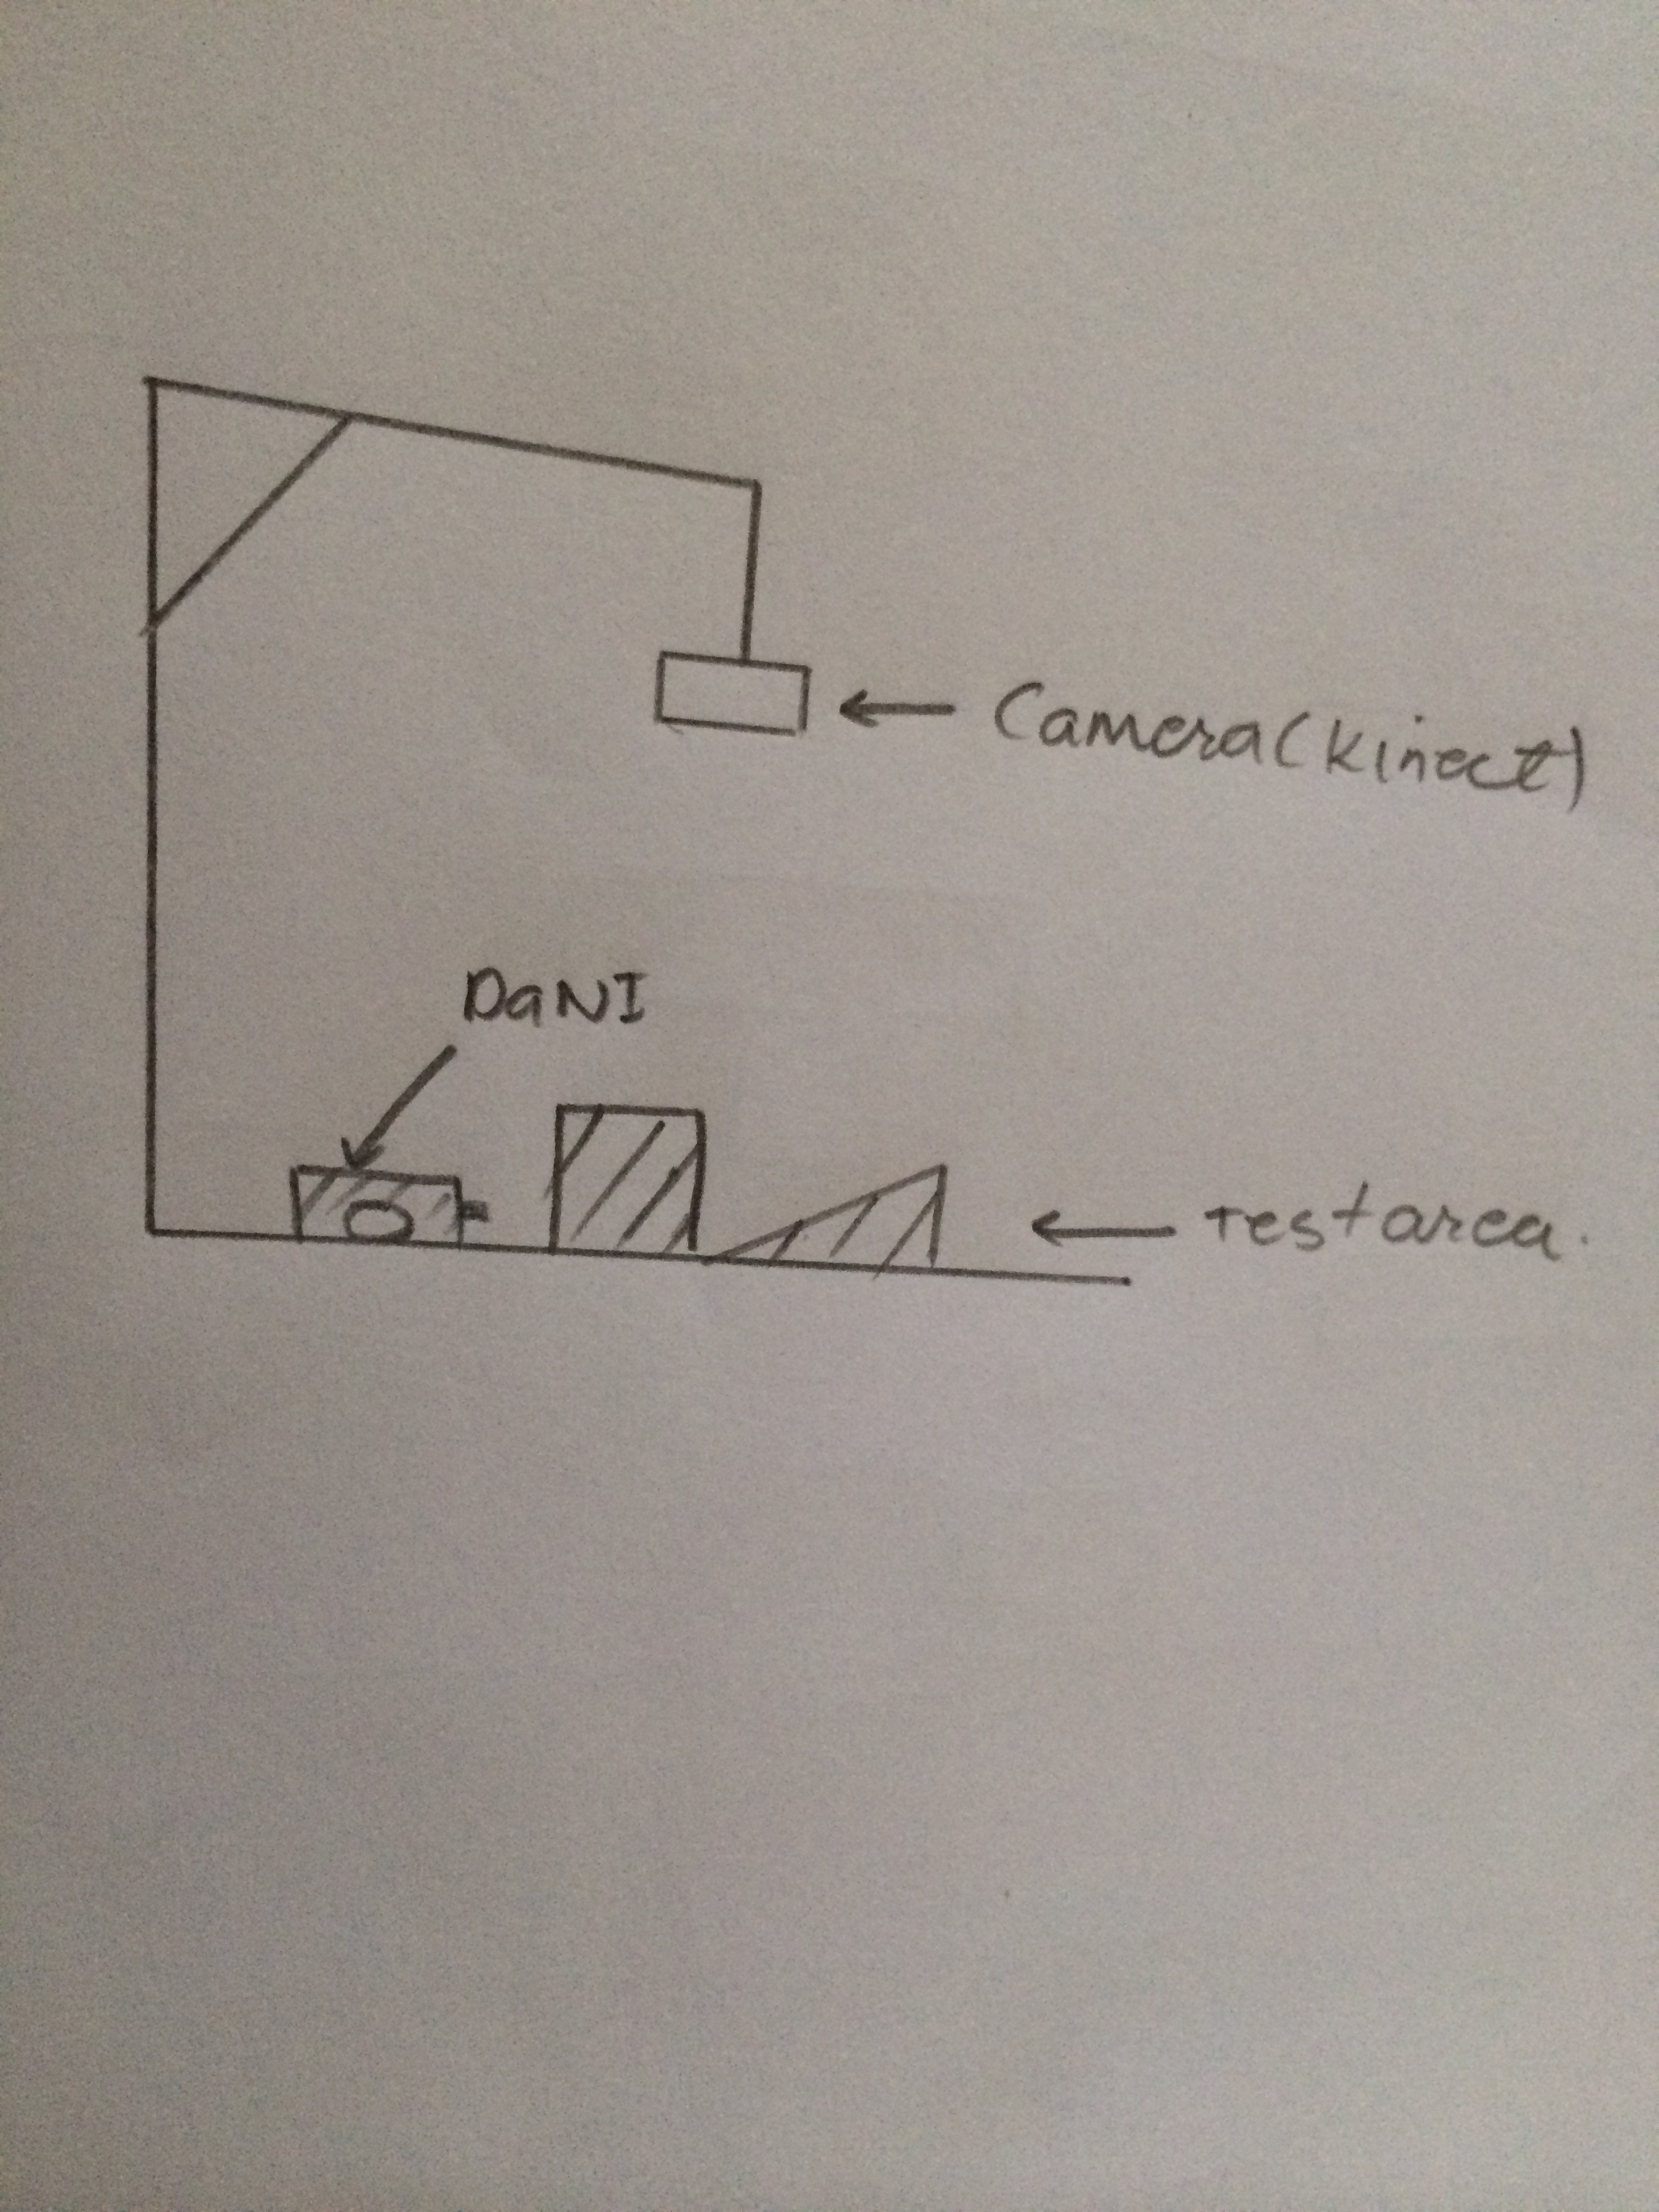 Camera(kinect)
DaNI
Test area.